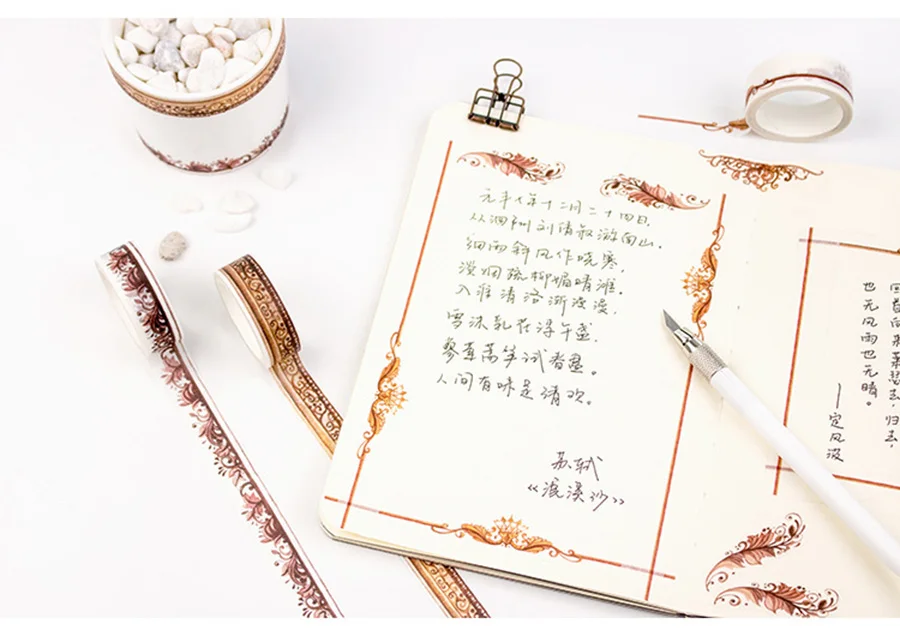 元丰七年十二月二十四日，
从泗州刘倩叔游南山。
细雨斜风作晓寒，
淡烟疏柳媚晴滩。
入淮清洛渐漫漫。
雪沫乳花浮午盏，
蓼茸蒿笋试春盘。
人间有味是清欢。
苏轼
《浣溪沙》
回首向来萧瑟去，归去，
也无风雨也无晴。
——定风波